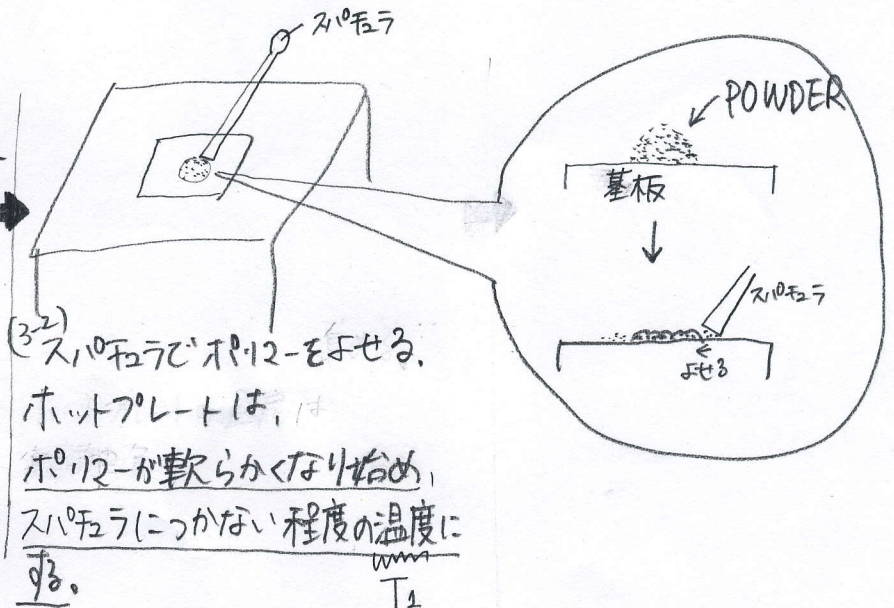 スパチュラ
POWDER
基板
スパチュラ
よせる
(3-2)
スパチュラでポリマーをよせる.
ホットプレートは,
ポリマーが軟らかくなり始め,
スパチュラにつかない程度の温度に
する。
T1